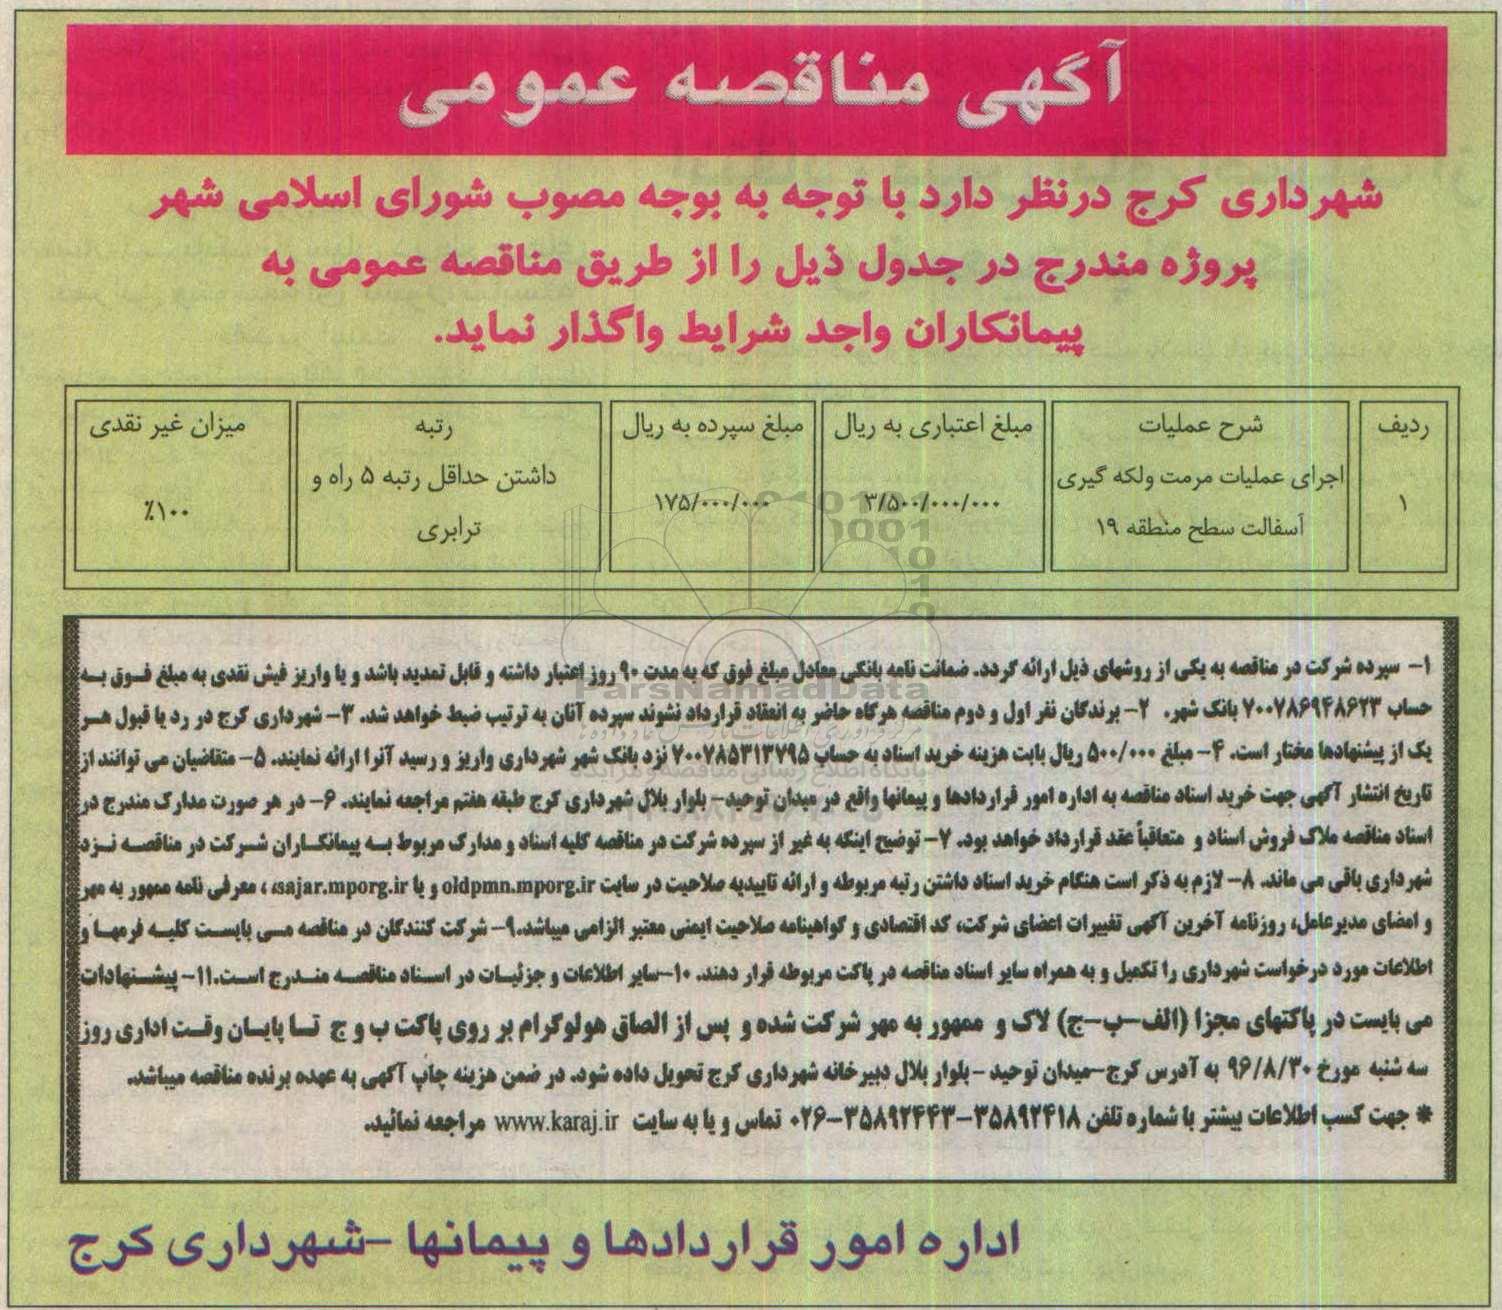 آگهی مناقصه عمومی
شهرداری کرج درنظر دارد با توجه به بوجه مصوب شورای اسلامی شهر
پروژه مندرج در جدول ذیل را از طریق مناقصه عمومی به
پیمانکاران واجد شرایط واگذار نماید.
ردیف شرح عملیات مبلغ اعتباری به ریال مبلغ سپرده به ریال رتبه میزان غیر نقدی
۱ اجرای عملیات مرمت ولکه گیری آسفالت سطح منطقه ۱۹ ۳/۵۰۰/۰۰۰/۰۰۰ ۱۷۵/۰۰۰/۰۰۰ داشتن حداقل رتبه ۵ راه و ترابری ٪۱۰۰
۱- سپرده شرکت در مناقصه به یکی از روشهای ذیل ارائه گردد. ضمانت نامه بانکی معادل مبلغ فوق که به مدت ۹۰ روز اعتبار داشته و قابل تمدید باشد و یا واریز فیش نقدی به مبلغ فوق به
حساب ۷۰۰۷۸۶۹۴۸۶۲۳ بانک شهر. ۲- برندگان نفر اول و دوم مناقصه هرگاه حاضر به انعقاد قرارداد نشوند سپرده آنان به ترتیب ضبط خواهد شد. ۳- شهرداری کرج در رد یا قبول هر
یک از پیشنهادها مختار است. ۴- مبلغ ۵۰۰/۰۰۰ ریال بابت هزینه خرید اسناد به حساب ۷۰۰۷۸۵۳۱۳۷۹۵ نزد بانک شهر شهرداری واریز و رسید آنرا ارائه نمایند. ۵- متقاضیان می توانند از
تاریخ انتشار آگهی جهت خرید اسناد مناقصه به اداره امور قراردادها و پیمانها واقع در میدان توحید- بلوار بلال شهرداری کرج طبقه هفتم مراجعه نمایند. ۶- در هر صورت مدارک مندرج در
اسناد مناقصه ملاک فروش اسناد و متعاقباً عقد قرارداد خواهد بود. ۷- توضیح اینکه به غیر از سپرده شرکت در مناقصه کلیه اسناد و مدارک مربوط به پیمانکاران شرکت در مناقصه نزد
شهرداری باقی می ماند. ۸- لازم به ذکر است هنگام خرید اسناد داشتن رتبه مربوطه و ارائه تاییدیه صلاحیت در سایت oldpmn.mporg.ir و یا sajar.mporg.ir، معرفی نامه ممهور به مهر
و امضای مدیرعامل، روزنامه آخرین آگهی تغییرات اعضای شرکت، کد اقتصادی و گواهینامه صلاحیت ایمنی معتبر الزامی میباشد.۹- شرکت کنندگان در مناقصه می بایست کلیه فرمها و
اطلاعات مورد درخواست شهرداری را تکمیل و به همراه سایر اسناد مناقصه در پاکت مربوطه قرار دهند. ۱۰-سایر اطلاعات و جزئیات در اسناد مناقصه مندرج است.۱۱- پیشنهادات
می بایست در پاکتهای مجزا (الف-ب-ج) لاک و ممهور به مهر شرکت شده و پس از الصاق هولوگرام بر روی پاکت ب و ج تا پایان وقت اداری روز
سه شنبه مورخ ۹۶/۸/۳۰ به آدرس کرج-میدان توحید - بلوار بلال دبیرخانه شهرداری کرج تحویل داده شود. در ضمن هزینه چاپ آگهی به عهده برنده مناقصه میباشد.
* جهت کسب اطلاعات بیشتر با شماره تلفن ۳۵۸۹۲۴۱۸-۳۵۸۹۲۴۴۳-۰۲۶ تماس و یا به سایت www.karaj.ir مراجعه نمائید.
اداره امور قراردادها و پیمانها -شهرداری کرج
ParsNamadData